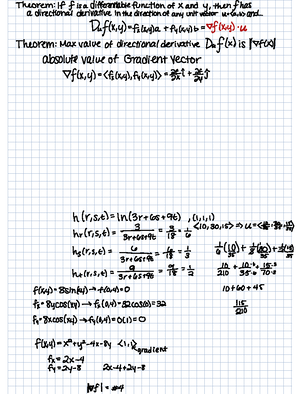 Theorem: If f is a differentiable function of x and y, then f has
a directional derivative in the direction of any unit vector u=<a,b> and
Duf(x,y) = fx(x,y)a + fy(x,y)b = ∇f(x,y)·u
Theorem: Max value of directional derivative Duf(x) is |∇f(x)|
absolute value of Gradient vector
∇f(x,y) = <fx(x,y), fy(x,y)> = ∂f/∂x i + ∂f/∂y j
h(r,s,t) = ln(3r+6s+9t) , (1,1,1)
hr(r,s,t) = 3/(3r+6s+9t) = 3/18 = 1/6
<10,30,15> ⇒ u =
hs(r,s,t) = 6/(3r+6s+9t) = 6/18 = 1/3
ht(r,s,t) = 9/(3r+6s+9t) = 9/18 = 1/2
f(x,y) = 8sin(xy) → f(0,4) = 0
10+60+45
fx = 8ycos(xy) → fx(0,4) = 32cos(0) = 32
115/210
fy = 8xcos(xy) → fy(0,4) = 0(1) = 0
f(x,y) = x²+y²-4x-8y <1,1>
gradient
fx = 2x-4
fy = 2y-8 2x-4+2y-8
|∇f| =